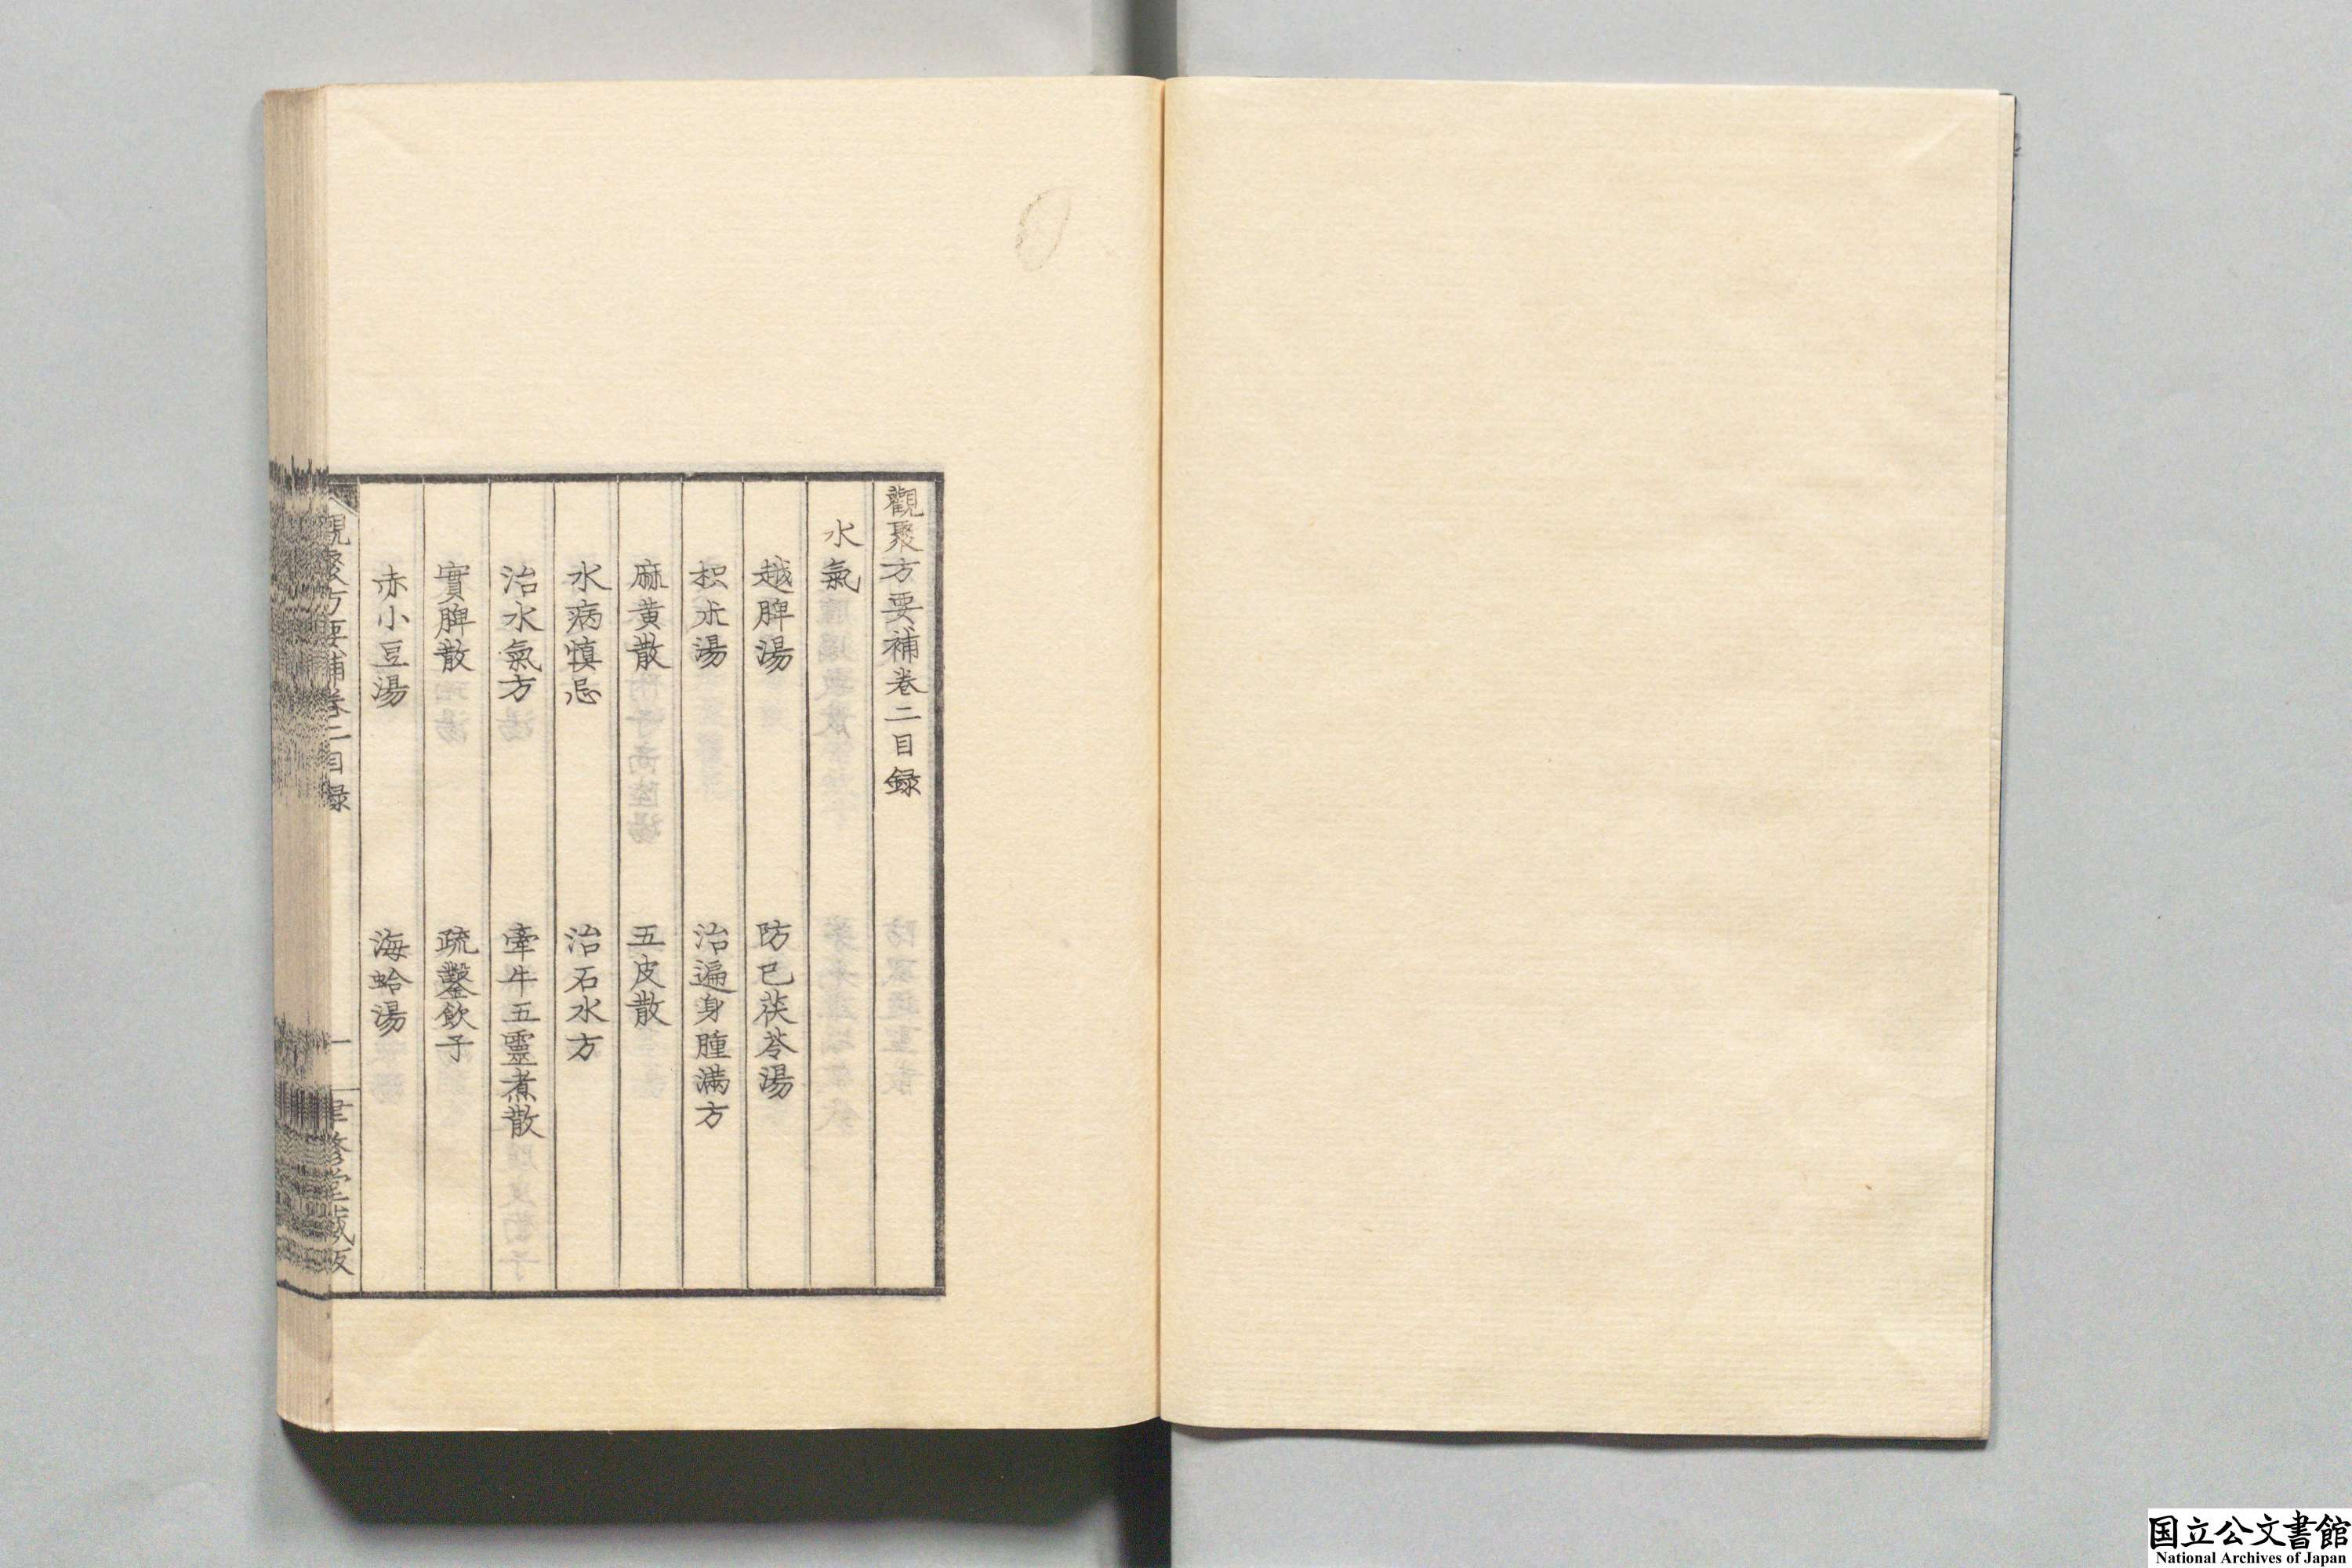 觀聚方要補卷二目録
水氣
越脾湯　防已茯苓湯
枳朮湯　治遍身腫滿方
麻黄散　五皮散
水病慎忌　治石水方
治水氣方　牽牛五靈煮散
實脾散　疏鑿飲子
赤小豆湯　海蛤湯
觀聚方要補卷二目録　一　聿修堂藏板
国立公文書館
National Archives of Japan